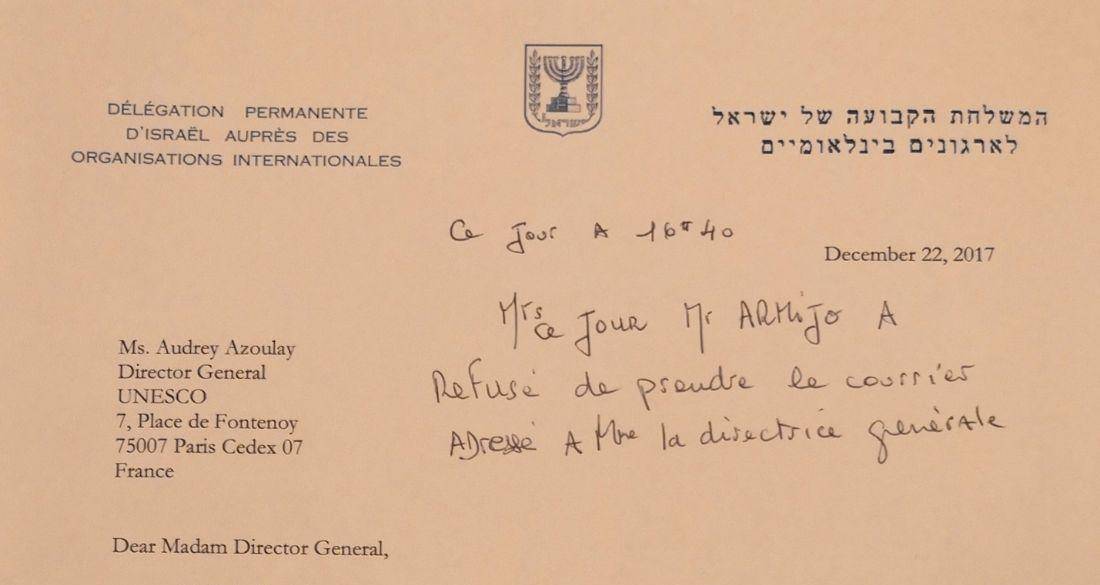 ישראל
DÉLÉGATION PERMANENTE
D'ISRAËL AUPRÈS DES
ORGANISATIONS INTERNATIONALES
המשלחת הקבועה של ישראל
לארגונים בינלאומיים
Ce jour A 16H40
December 22, 2017
Mrs
Ce JOUR Mr ARMIJO A
Refusé de prendre le courrier
ADressé A Mme la directrice générale
Ms. Audrey Azoulay
Director General
UNESCO
7, Place de Fontenoy
75007 Paris Cedex 07
France
Dear Madam Director General,